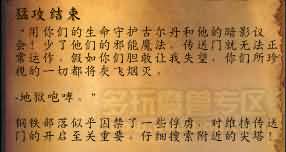 猛攻结束
“用你们的生命守护古尔丹和他的暗影议
会！少了他们的邪能魔法，传送门就无法正
常运作，假如你们胆敢让我失望，你们所珍
视的一切都将灰飞烟灭。
-地狱咆哮。”
钢铁部落似乎囚禁了一些俘虏，对维持传送
门的开启至关重要，仔细搜索附近的尖塔！